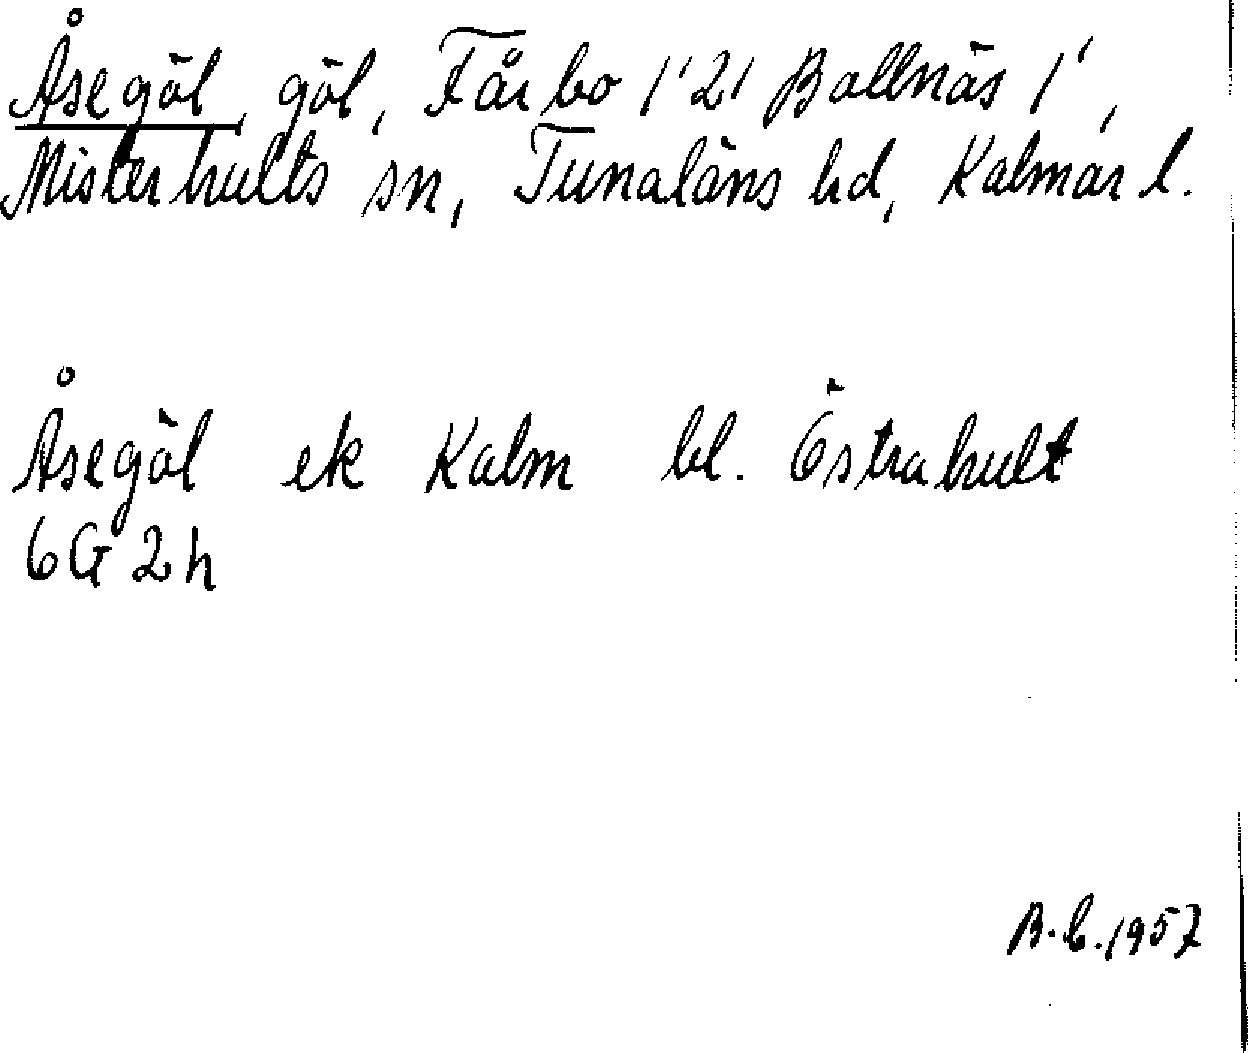 Åsegöl, göl, Fårbo 1'21 Bollnäs 1',
Misterhults sn, Tunaläns hd, Kalmar l.
Åsegöl ek Kalm bl. Östrahult
6G 2h
B.b.1957